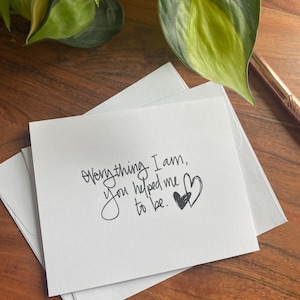 everything I am,
you helped me
to be.